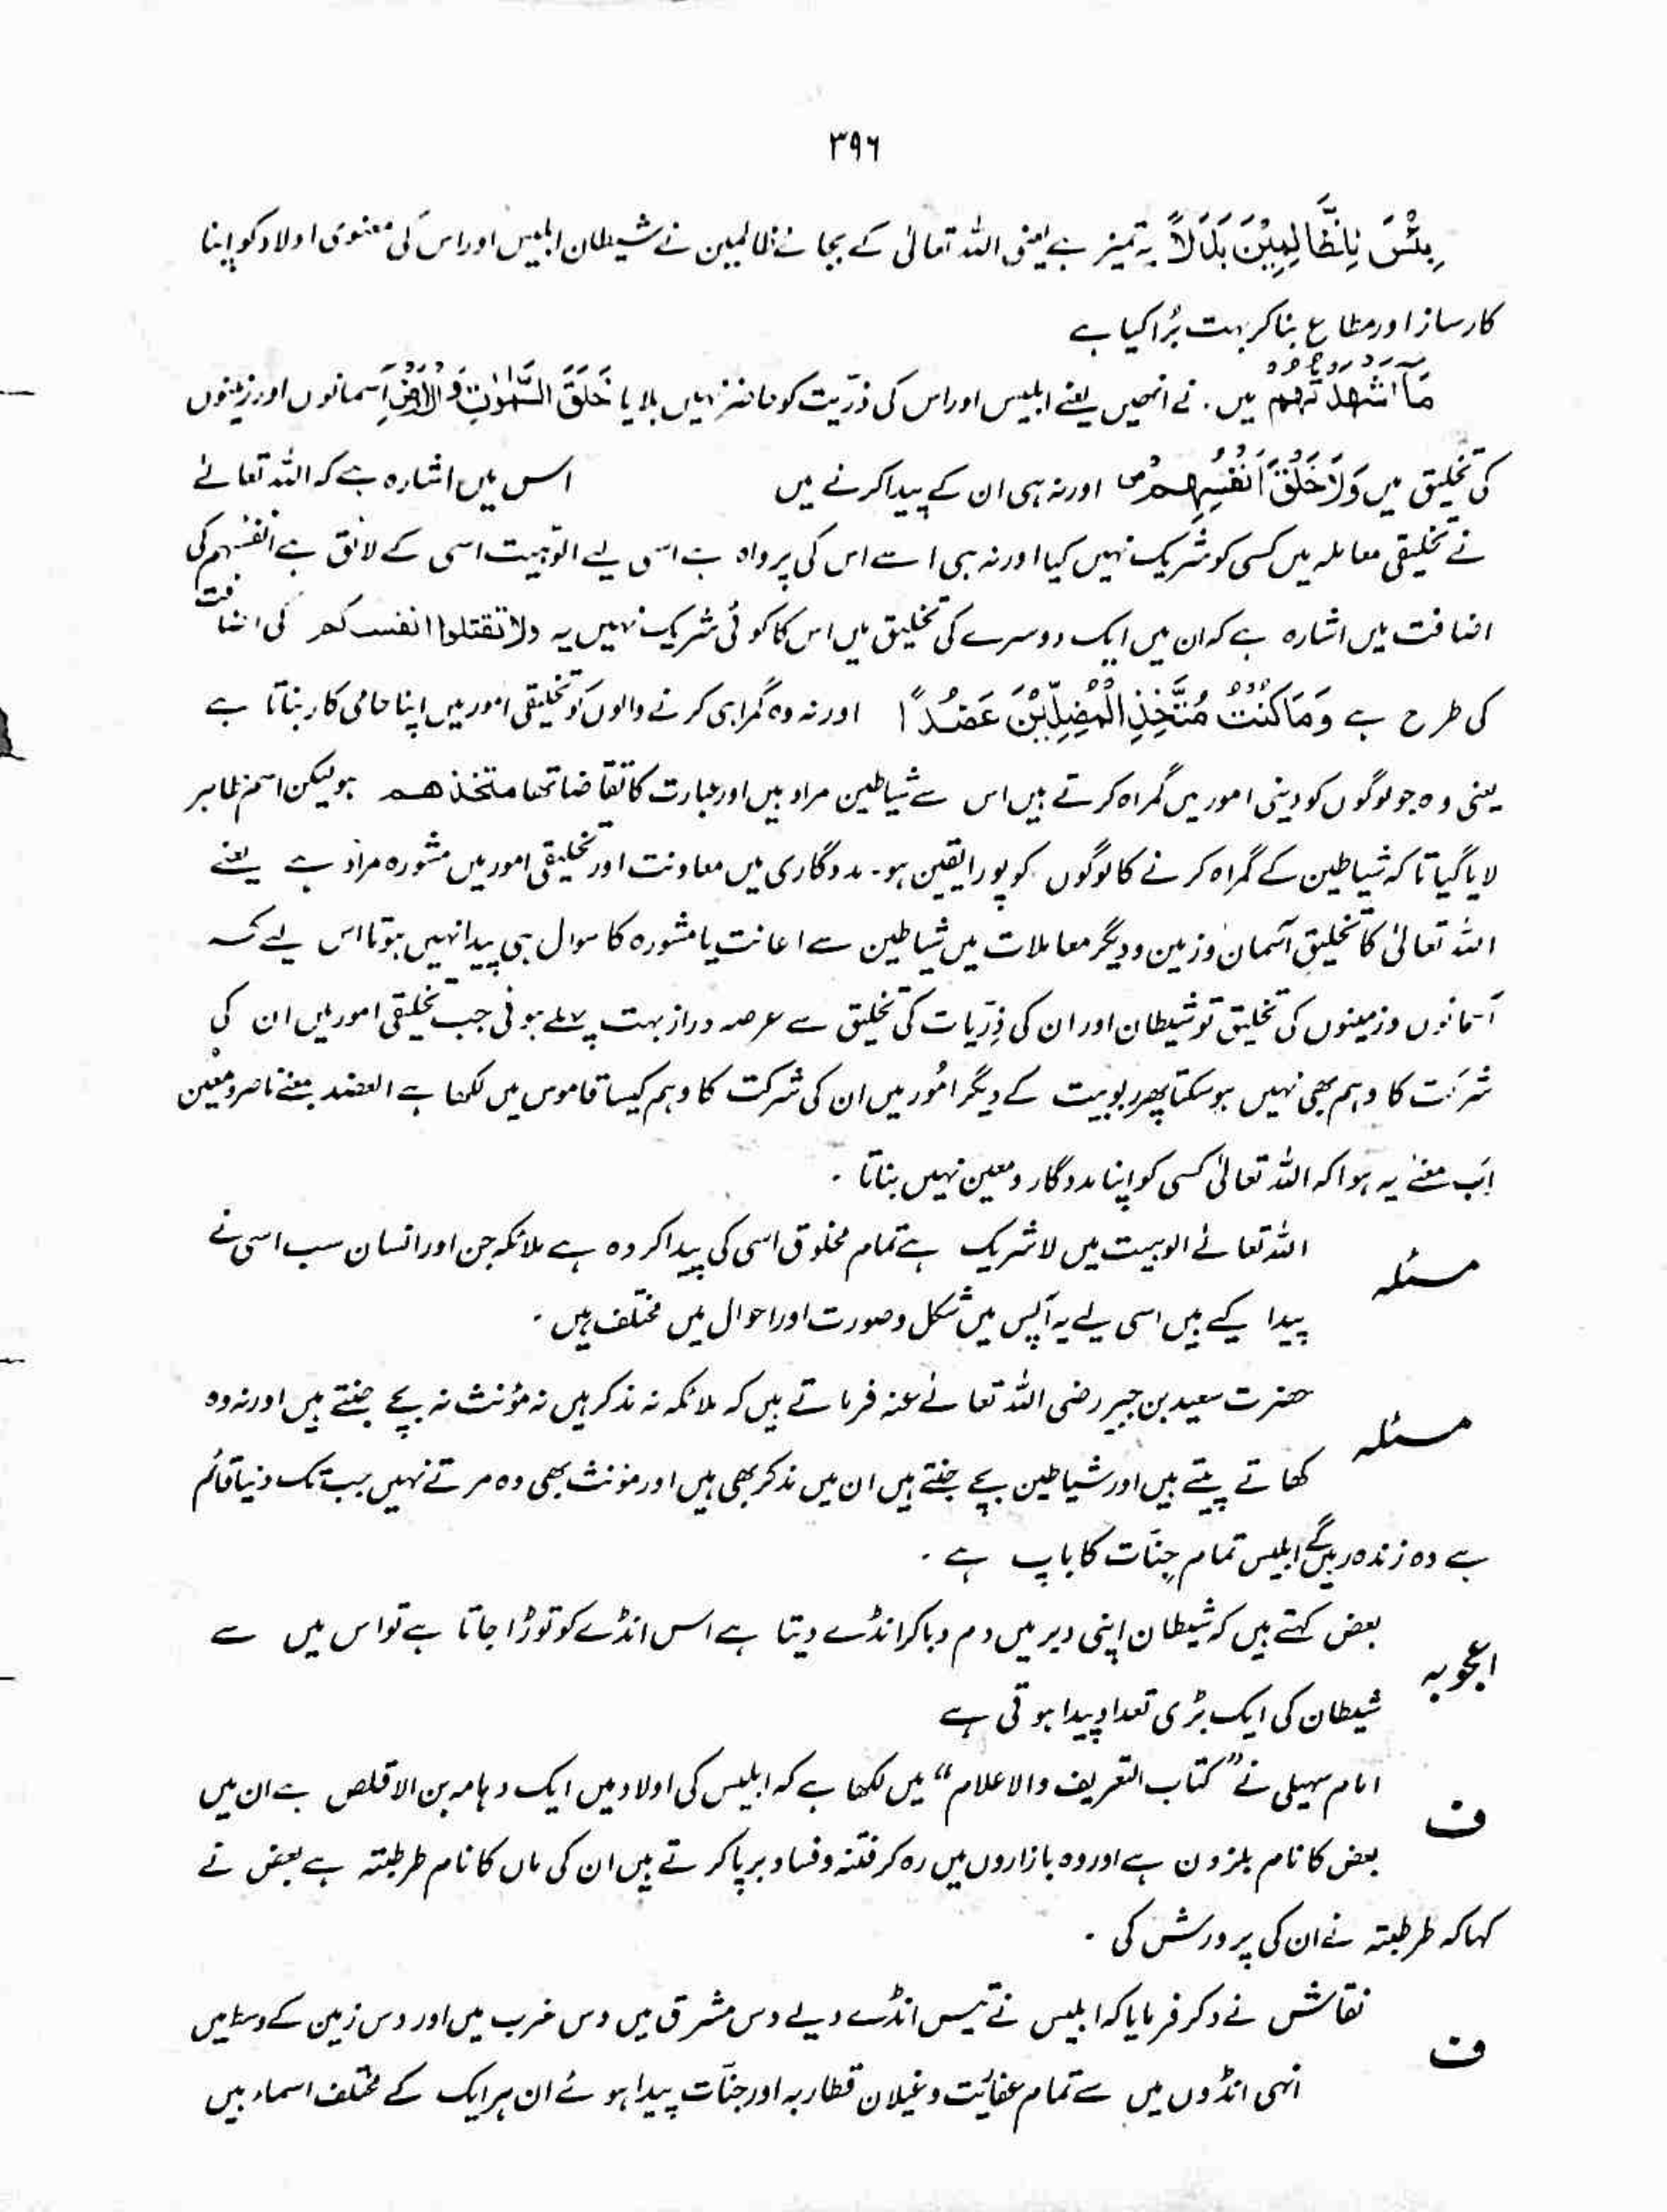 ۳۹۶
بِئْسَ لِلظَّالِمِيْنَ بَدَلًا یہ تمیز ہے یعنی اللہ تعالیٰ کے بجائے ظالمین نے شیطان ابلیس اور اس کی معنوی اولاد کو اپنا
کارساز اور مطاع بنا کر بہت بُرا کیا ہے
مَا اَشْهَدْتُّهُمْ میں نے انھیں یعنے ابلیس اور اس کی ذرّیت کو حاضر نہیں بلایا خَلْقَ السَّمٰوٰتِ وَالْاَرْضِ آسمانوں اور زمینوں
کی تخلیق میں وَلَا خَلْقَ اَنْفُسِهِمْ ص اور نہ ہی ان کے پیدا کرنے میں اس میں اشارہ ہے کہ اللہ تعالےٰ
نے تخلیقی معاملہ میں کسی کو شریک نہیں کیا اور نہ ہی اسے اس کی پرواہ ہے اسی لیے الوہیت اسی کے لائق ہے انفسہم کی
اضافت میں اشارہ ہے کہ ان میں ایک دوسرے کی تخلیق میں اس کا کوئی شریک نہیں یہ ولا تقتلوا انفسکم کی اضافت
کی طرح ہے وَمَا كُنْتُ مُتَّخِذَ الْمُضِلِّيْنَ عَضُدًا اور نہ وہ گمراہی کرنے والوں کو تخلیقی امور میں اپنا حامی کار بناتا ہے
یعنی وہ جو لوگوں کو دینی امور میں گمراہ کرتے ہیں اس سے شیاطین مراد ہیں اور عبارت کا تقاضا تھا متخذھم ہو لیکن اسم ظاہر
لایا گیا تاکہ شیاطین کے گمراہ کرنے کا لوگوں کو پورا یقین ہو۔ مددگاری میں معاونت اور تخلیقی امور میں مشورہ مراد ہے یعنے
اللہ تعالیٰ کا تخلیق آسمان و زمین و دیگر معاملات میں شیاطین سے اعانت یا مشورہ کا سوال ہی پیدا نہیں ہوتا اس لیے کہ
آسمانوں و زمینوں کی تخلیق تو شیطان اور ان کی ذِرّیات کی تخلیق سے عرصہ دراز بہت پہلے ہوئی جب تخلیقی امور میں ان کی
شرکت کا وہم بھی نہیں ہو سکتا پھر ربوبیت کے دیگر امُور میں ان کی شرکت کا وہم کیسا قاموس میں لکھا ہے العضد بمعنے ناصر و معین
اَب معنےٰ یہ ہوا کہ اللہ تعالیٰ کسی کو اپنا مددگار و معین نہیں بناتا ۔
مسئلہ اللہ تعالےٰ الوہیت میں لا شریک ہے تمام مخلوق اسی کی پیدا کردہ ہے ملائکہ جن اور انسان سب اسی نے
پیدا کیے ہیں اسی لیے یہ آپس میں شکل و صورت اور احوال میں مختلف ہیں ۔
مسئلہ حضرت سعید بن جبیر رضی اللہ تعالےٰ عنہ فرماتے ہیں کہ ملائکہ نہ مذکر ہیں نہ مؤنث نہ بچے جنتے ہیں اور نہ وہ
کھاتے پیتے ہیں اور شیاطین بچے جنتے ہیں ان میں مذکر بھی ہیں اور مؤنث بھی وہ مرتے نہیں جب تک دنیا قائم
ہے وہ زندہ رہیں گے ابلیس تمام جنّات کا باپ ہے ۔
اعجوبہ بعض کہتے ہیں کہ شیطان اپنی دبر میں دم دبا کر انڈے دیتا ہے اس انڈے کو توڑا جاتا ہے تو اس میں سے
شیطان کی ایک بڑی تعداد پیدا ہوتی ہے
ف امام سہیلی نے ”کتاب التعریف والاعلام“ میں لکھا ہے کہ ابلیس کی اولاد میں ایک دہامہ بن الاقلص ہے ان میں
بعض کا نام بلزون ہے اور وہ بازاروں میں رہ کر فتنہ و فساد برپا کرتے ہیں ان کی ماں کا نام طرطبتہ ہے بعض نے
کہا کہ طرطبتہ نے ان کی پرورش کی ۔
ف نقاش نے ذکر فرمایا کہ ابلیس نے تیس انڈے دیے دس مشرق میں دس غرب میں اور دس زمین کے وسط میں
انہی انڈوں میں سے تمام عفائیت و غیلان قطاربہ اور جنّات پیدا ہوئے ان ہر ایک کے مختلف اسماء ہیں